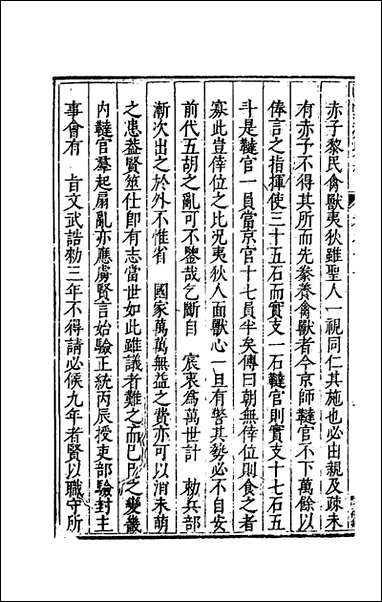 赤子黎民禽獸夷狄雖聖人一視同仁其施也必由親及疎未
有赤子不得其所而先豢養禽獸者今京師韃官不下萬餘以
俸言之指揮使三十五石而實支一石韃官則實支十七石五
斗是韃官一員當京官十七員半矣傳曰朝無倖位則食之者
寡此豈倖位之比况夷狄人面獸心一旦有警其勢必不自安
前代五胡之亂可不鑒哉乞斷自 宸衷爲萬世計 勅兵部
漸次出之於外不惟省 國家萬萬無益之費亦可以消未萌
之患葢賢筮仕即有志當世如此雖議者難之而己巳之變畿
内韃官羣起扇亂亦應虜賢言始驗正統丙辰授吏部驗封主
事會有 旨文武誥勅三年不得請必候九年者賢以職守所